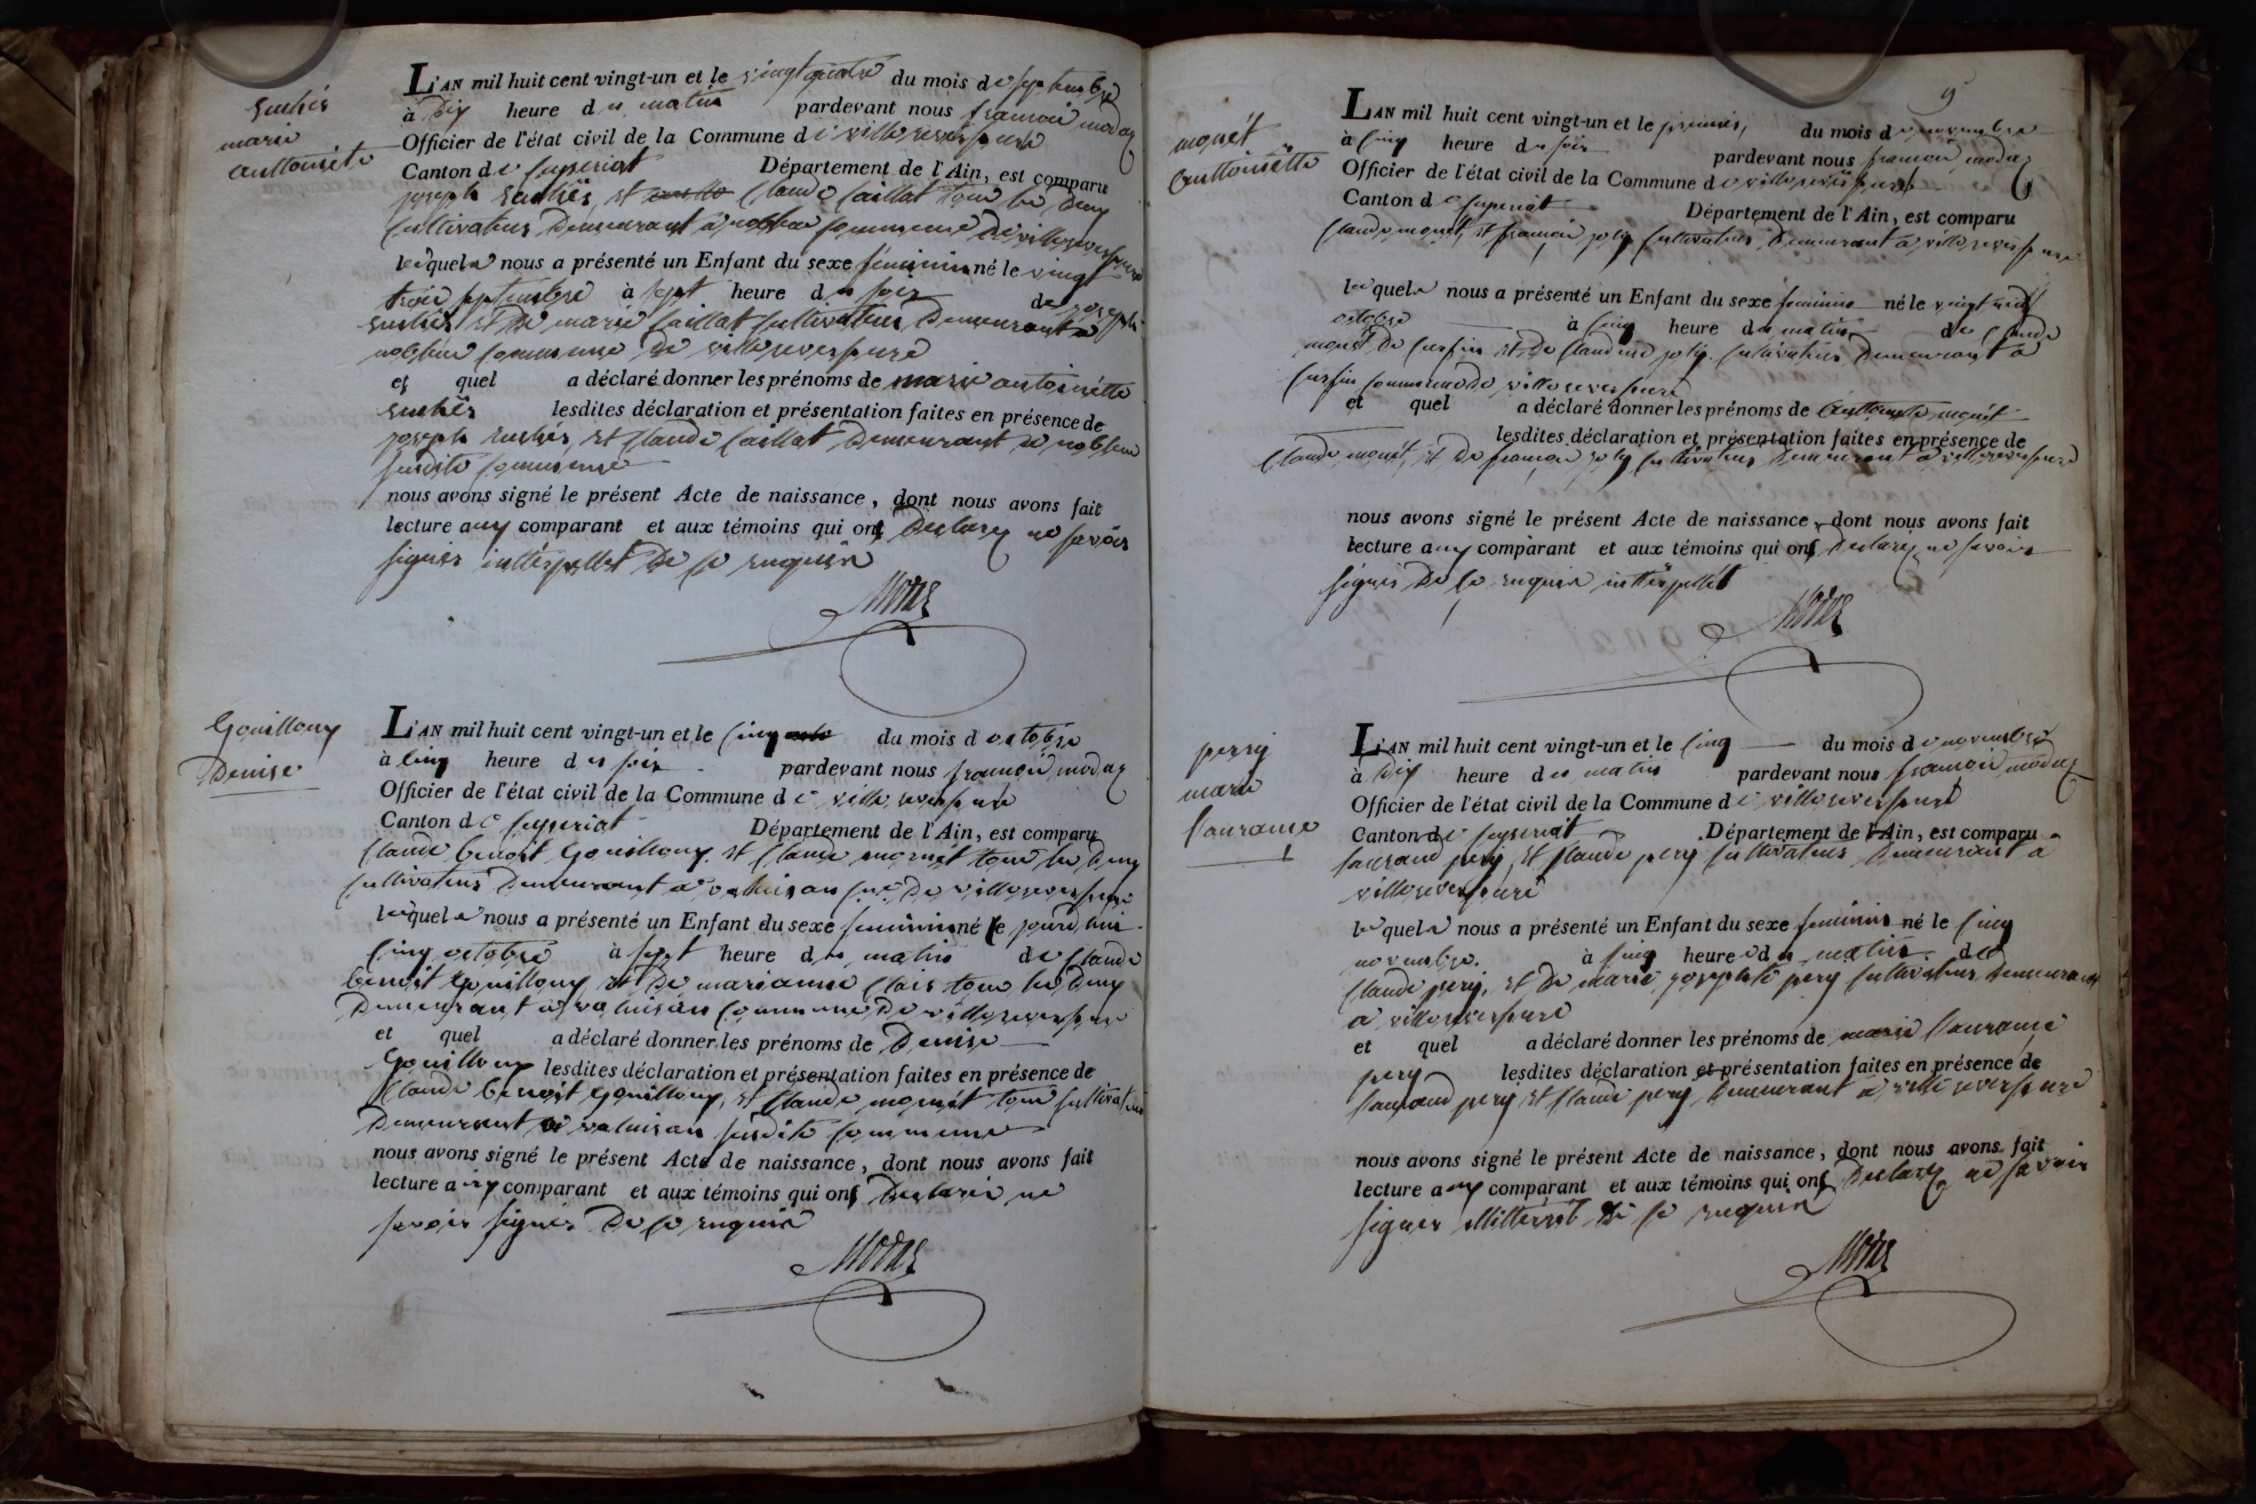 suchés
marie
anttoinéte
L'AN mil huit cent vingt-un et le vingt quatre du mois de septembre
à dix heure du matin pardevant nous francois modas
Officier de l'état civil de la Commune de villereversure
Canton de ceyseriat Département de l'Ain, est comparu
joseph suchés, et claude caillat tous les deux
cultivateurs demeurant a noblen commune de villereversure
lesquels nous a présenté un Enfant du sexe féminin né le vingt
trois septembre à sept heure du soir de joseph
suchés et de marie caillat cultivateurs demeurant a
noblen commune de villereversure
et quel a déclaré donner les prénoms de marie antoinétte
suchés lesdites déclaration et présentation faites en présence de
joseph suchés, et claude caillat demeurant a noblen
susdite commune
nous avons signé le présent Acte de naissance, dont nous avons fait
lecture aux comparant et aux témoins qui ont declarez ne savoir
signer de ce requis
Modas
Gouilloux
Denise
L'AN mil huit cent vingt-un et le cinq du mois d octobre
à cinq heure du soir pardevant nous francois modas
Officier de l'état civil de la Commune de villereversure
Canton de ceyseriat Département de l'Ain, est comparu
claude benoit Gouilloux et claude monét tous les deux
cultivateurs demeurant a valuisan de villereversure
lesquels nous a présenté un Enfant du sexe feminin né le jourdhui
cinq octobre à sept heure du matin de claude
benoit Gouilloux et de marianne clais tous les deux
demeurant a valuisan commune de villereversure
et quel a déclaré donner les prénoms de Denise
Gouilloux lesdites déclaration et présentation faites en présence de
claude benoit gouilloux, et claude monét tous cultivateurs
demeurant a valuisan susdite commune
nous avons signé le présent Acte de naissance, dont nous avons fait
lecture aux comparant et aux témoins qui ont declarés ne
savoir signer de ce requis
Modas
9
monét
anttoinétte
L'AN mil huit cent vingt-un et le premier du mois de novembre
à cinq heure du soir pardevant nous francois modas
Officier de l'état civil de la Commune de villereversure
Canton de ceyseriat Département de l'Ain, est comparu
claude monet, et francois joly cultivateurs demeurant a villereversure
lesquels nous a présenté un Enfant du sexe feminin né le vingt neuf
octobre à cinq heure du matin de claude
monét de cursin et de claudine joly cultivateurs demeurant a
cursin commune de villereversure
et quel a déclaré donner les prénoms de anttoinette monét
lesdites déclaration et présentation faites en présence de
claude monét, et de francois joly cultivateurs demeurant a villereversure
nous avons signé le présent Acte de naissance, dont nous avons fait
lecture aux comparant et aux témoins qui ont declarez ne savoir
signer de ce requis
Modas
pery
marie
laurance
L'AN mil huit cent vingt-un et le cinq du mois de novembre
à dix heure du matin pardevant nous francois modas
Officier de l'état civil de la Commune de villereversure
Canton de ceyseriat Département de l'Ain, est comparu
laurand pery, et claude pery cultivateurs demeurant a
villereversure
lesquels nous a présenté un Enfant du sexe feminin né le cinq
novembre à cinq heure du matin de
claude pery, et de marie josephte pery cultivateurs demeurant
a villereversure
et quel a déclaré donner les prénoms de marie laurance
pery lesdites déclaration et présentation faites en présence de
laurand pery et claude pery demeurant a villereversure
nous avons signé le présent Acte de naissance, dont nous avons fait
lecture aux comparant et aux témoins qui ont declarez ne savoir
signer de ce requis
Modas